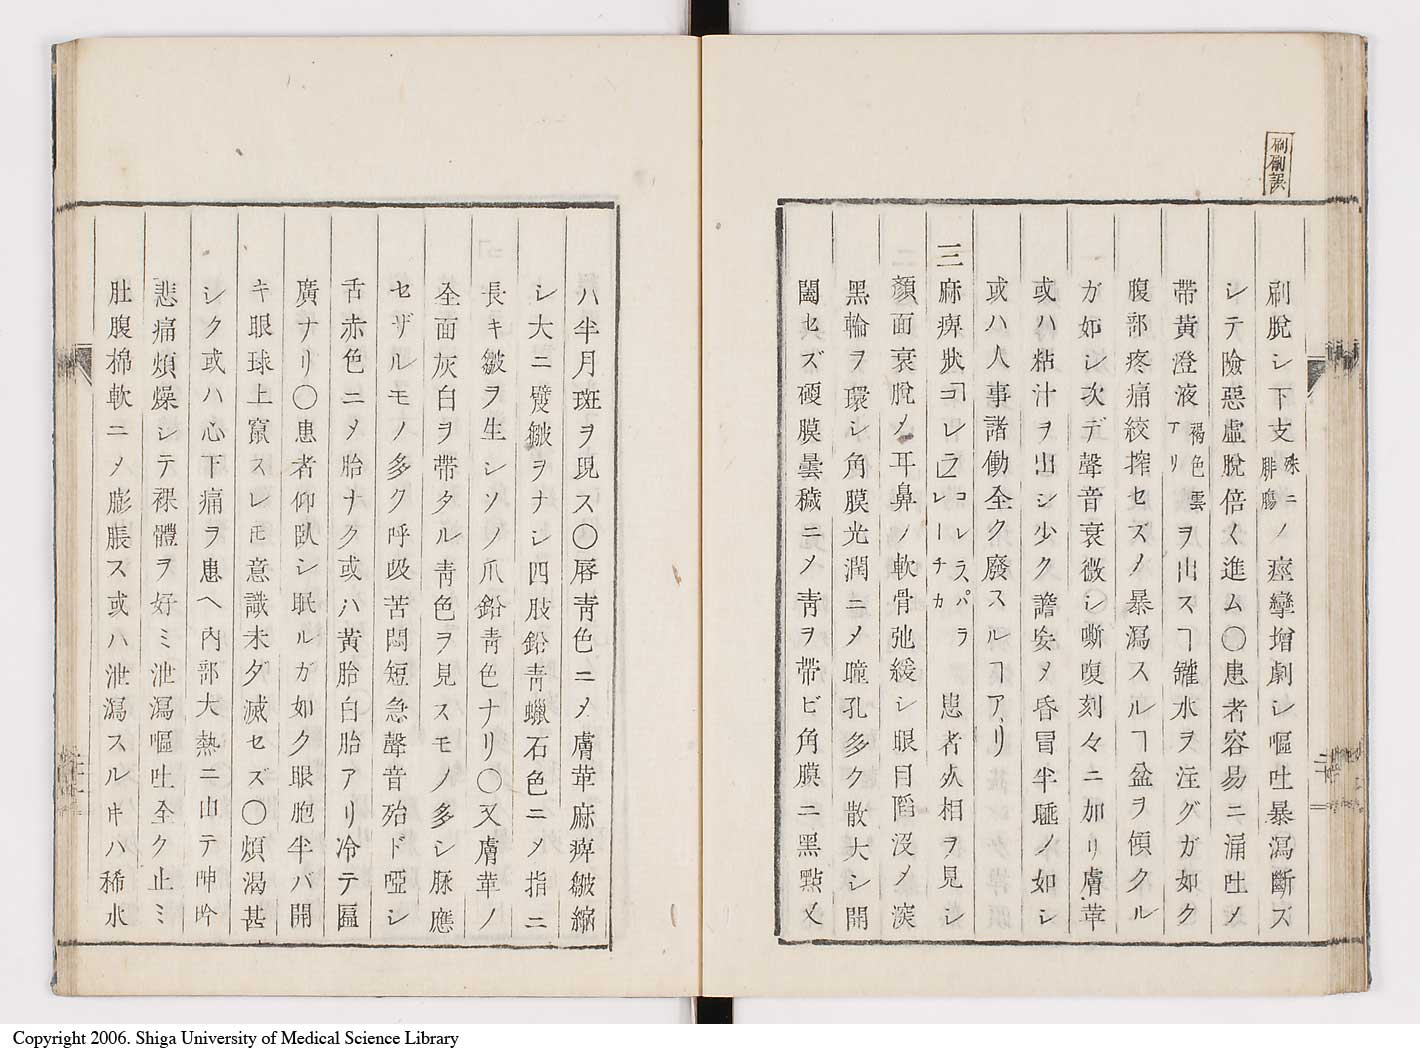 刷脫シ下支殊ニ腓膓ノ痙攣增劇シ嘔吐暴瀉斷ズ
シテ險惡虛脫倍く進ム〇患者容易ニ涌吐〆
帶黃澄液褐色雲アリヲ出スヿ罐水ヲ注グガ如ク
腹部疼痛絞搾セズ〆暴瀉スルヿ盆ヲ傾クル
ガ如シ次デ聲音衰微シ嘶嗄刻々ニ加リ膚華
或ハ粘汁ヲ出シ少ク譫妄〆昏冒半睡ノ如シ
或ハ人事諸働全ク廢スルヿアリ
三 麻痺狀コレラコレラ、パラレーチカ 患者死相ヲ見シ
顏面衰脫〆耳鼻ノ軟骨弛緩シ眼目陷沒〆淚
黑輪ヲ環シ角膜光潤ニ〆瞳孔多ク散大シ開
闔セズ硬膜曇穢ニ〆靑ヲ帶ビ角膜ニ黑點又
ハ半月斑ヲ現ス〇唇靑色ニ〆膚華麻痺皺縮
シ大ニ襞皺ヲナシ四肢鉛靑蠟石色ニ〆指ニ
長キ皺ヲ生シソノ爪鉛靑色ナリ〇又膚華ノ
全面灰白ヲ帶タル靑色ヲ見スモノ多シ脈應
セザルモノ多ク呼吸苦悶短急聲音殆ド啞シ
舌赤色ニ〆胎ナク或ハ黃胎白胎アリ冷テ匾
廣ナリ〇患者仰臥シ眠ルガ如ク眼胞半バ開
キ眼球上竄スレ𪜈意識未タ滅セズ〇煩渴甚
シク或ハ心下痛ヲ患ヘ內部大熱ニ由テ呻吟
悲痛煩燥シテ裸體ヲ好ミ泄瀉嘔吐全ク止ミ
肚腹棉軟ニ〆膨脹ス或ハ泄瀉スルキハ稀水
刷誤
Copyright 2006. Shiga University of Medical Science Library